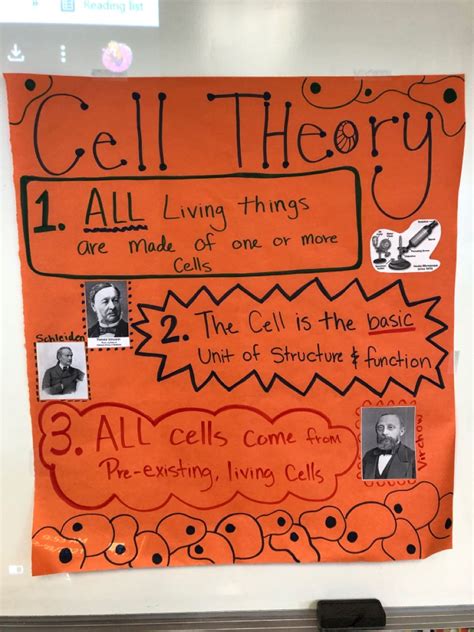 Reading list
Cell THeory
1. ALL Living things
are made of one or more
Cells
Schleiden
2. The Cell is the basic
Unit of Structure & function
3. ALL cells come from
Pre-existing, living Cells
Virchow